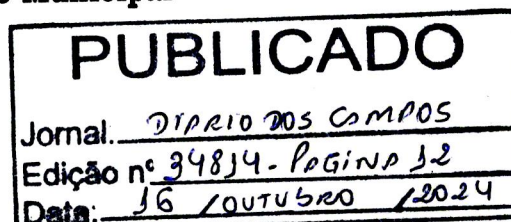 Municipal
PUBLICADO
Jornal. DIARIO DOS CAMPOS
Edição nº 34814 - PAGINA 12
Data: 16 / OUTUBRO / 2024